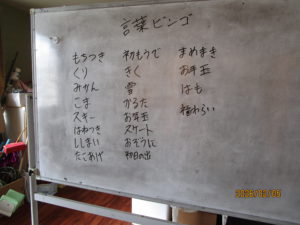 言葉ビンゴ
もちつき
くり
みかん
こま
スキー
はねつき
ししまい
たこあげ
初もうで
きく
雪
かるた
お年玉
スケート
おぞうに
初日の出
まめまき
お年玉
はも
福わらい